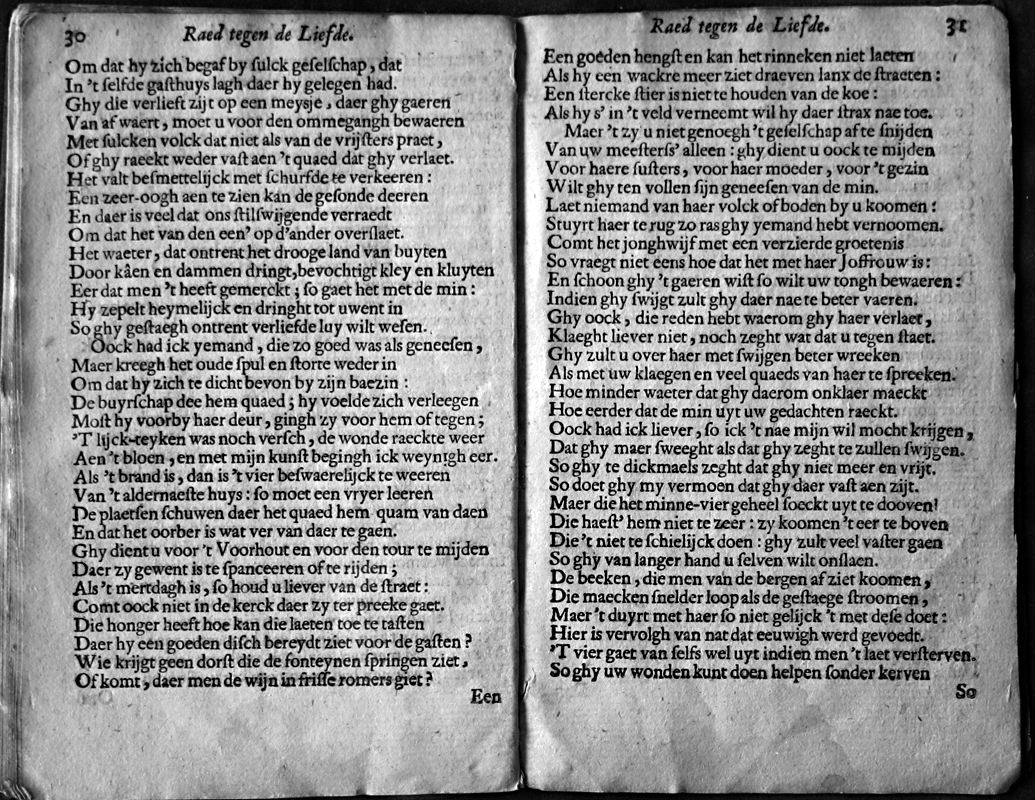 30 Raed tegen de Liefde.
Om dat hy zich begaf by ſulck geſelſchap, dat
In 't ſelfde gaſthuys lagh daer hy gelegen had.
Ghy die verlieft zijt op een meysje, daer ghy gaeren
Van af waert, moet u voor den ommegangh bewaeren
Met ſulcken volck dat niet als van de vrijſters praet,
Of ghy raeckt weder vaſt aen 't quaed dat ghy verlaet.
Het valt beſmettelijck met ſchurfde te verkeeren:
Een zeer-oogh aen te zien kan de geſonde deeren
En daer is veel dat ons ſtilſwijgende verraedt
Om dat het van den een' op d'ander overſlaet.
Het waeter, dat ontrent het drooge land van buyten
Door kåen en dammen dringt, bevochtigt kley en kluyten
Eer dat men 't heeft gemerckt; ſo gaet het met de min:
Hy zepelt heymelijck en dringht tot uwent in
So ghy geſtaegh ontrent verliefde luy wilt weſen.
Oock had ick yemand, die zo goed was als geneeſen,
Maer kreegh het oude ſpul en ſtorte weder in
Om dat hy zich te dicht bevon by zijn baezin:
De buyrſchap dee hem quaed; hy voelde zich verleegen
Moſt hy voorby haer deur, gingh zy voor hem of tegen;
'T lijck-teyken was noch verſch, de wonde raeckte weer
Aen 't bloen, en met mijn kunſt begingh ick weynigh eer.
Als 't brand is, dan is 't vier beſwaerelijck te weeren
Van 't aldernaeſte huys: ſo moet een vryer leeren
De plaetſen ſchuwen daer het quaed hem quam van daen
En dat het oorber is wat ver van daer te gaen.
Ghy dient u voor 't Voorhout en voor den tour te mijden
Daer zy gewent is te ſpanceeren of te rijden;
Als 't mertdagh is, ſo houd u liever van de ſtraet:
Comt oock niet in de kerck daer zy ter preeke gaet.
Die honger heeft hoe kan die laeten toe te taſten
Daer hy een goeden diſch bereydt ziet voor de gaſten?
Wie krijgt geen dorſt die de fonteynen ſpringen ziet,
Of komt, daer men de wijn in friſſe romers giet?
Een
Raed tegen de Liefde. 31
Een goeden hengſt en kan het rinneken niet laeten
Als hy een wackre meer ziet draeven lanx de ſtraeten:
Een ſtercke ſtier is niet te houden van de koe:
Als hy s' in 't veld verneemt wil hy daer ſtrax nae toe.
Maer 't zy u niet genoegh 't geſelſchap af te ſnijden
Van uw meeſterſs' alleen: ghy dient u oock te mijden
Voor haere ſuſters, voor haer moeder, voor 't gezin
Wilt ghy ten vollen ſijn geneeſen van de min.
Laet niemand van haer volck of boden by u koomen:
Stuyrt haer te rug zo ras ghy yemand hebt vernoomen.
Comt het jonghwijf met een verzierde groetenis
So vraegt niet eens hoe dat het met haer Joffrouw is:
En ſchoon ghy 't gaeren wiſt ſo wilt uw tongh bewaeren:
Indien ghy ſwijgt zult ghy daer nae te beter vaeren.
Ghy oock, die reden hebt waerom ghy haer verlaet,
Klaeght liever niet, noch zeght wat dat u tegen ſtaet.
Ghy zult u over haer met ſwijgen beter wreeken
Als met uw klaegen en veel quaeds van haer te ſpreeken.
Hoe minder waeter dat ghy daerom onklaer maeckt
Hoe eerder dat de min uyt uw gedachten raeckt.
Oock had ick liever, ſo ick 't nae mijn wil mocht krijgen,
Dat ghy maer ſweeght als dat ghy zeght te zullen ſwijgen.
So ghy te dickmaels zeght dat ghy niet meer en vrijt,
So doet ghy my vermoen dat ghy daer vaſt aen zijt.
Maer die het minne-vier geheel ſoeckt uyt te dooven!
Die haeſt' hem niet te zeer: zy koomen 't eer te boven
Die 't niet te ſchielijck doen: ghy zult veel vaſter gaen
So ghy van langer hand u ſelven wilt onſlaen.
De beeken, die men van de bergen af ziet koomen,
Die maecken ſnelder loop als de geſtaege ſtroomen,
Maer 't duyrt met haer ſo niet gelijck 't met deſe doet:
Hier is vervolgh van nat dat eeuwigh werd gevoedt.
'T vier gaet van ſelfs wel uyt indien men 't laet verſterven.
So ghy uw wonden kunt doen helpen ſonder kerven
So